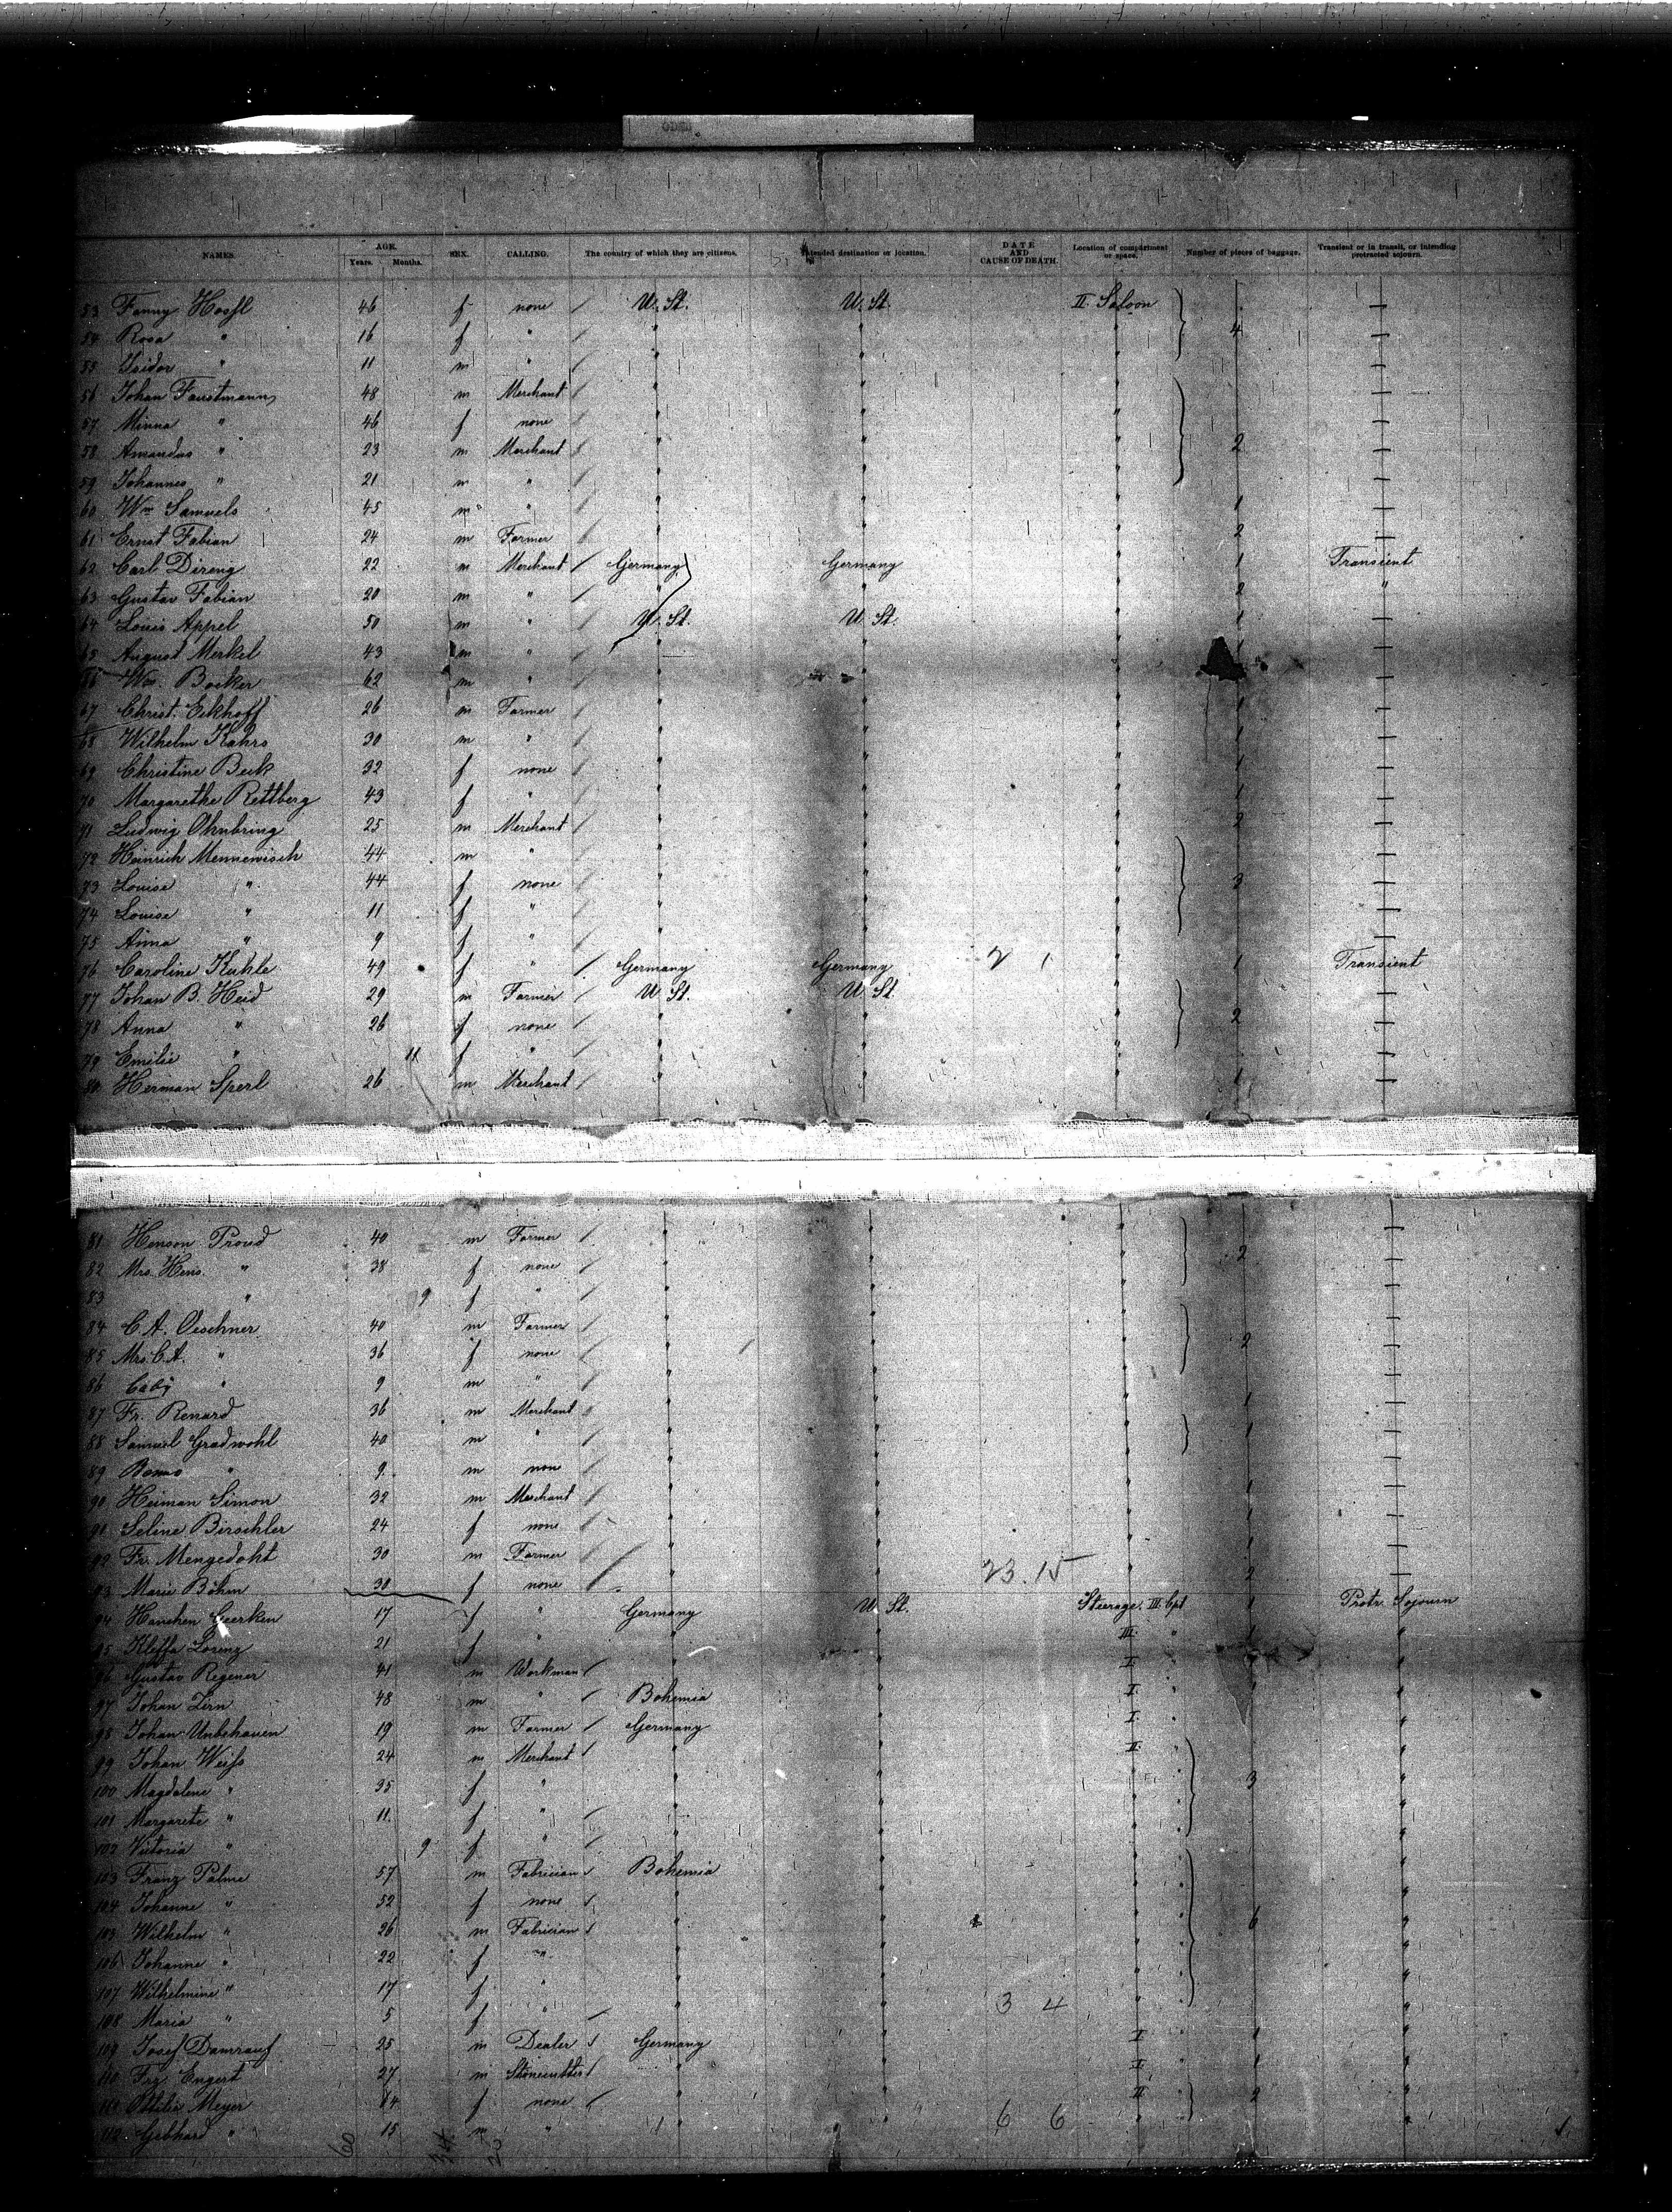 NAMES. AGE. Years. Months. SEX. CALLING. The country of which they are citizens. Intended destination or location. DATE AND CAUSE OF DEATH. Location of compartment or space. Number of pieces of baggage. Transient or in transit, or intending protracted sojourn.
53 Fanny 46 f none U. St. U. St. II. Saloon —
54 Rosa " 16 f " " " " 4 —
55 Isidor " 11 m " " " " —
56 Johan Faustmann 48 m Merchant " " " —
57 Minna " 46 f none " " " —
58 Amandus " 23 m Merchant " " " 2 —
59 Johannes " 21 m " " " " —
60 Wm Samuels 45 m " " " " 1 —
61 Ernst Fabian 24 m Farmer " " " 2 —
62 Carl Direng 22 m Merchant Germany Germany " 1 Transient
63 Gustav Fabian 20 m " " " " 2 "
64 Louis Appel 50 m " U. St. U. St. " 1 —
65 August Merkel 43 m " " " " 1 —
66 Wm. Bocker 62 m " " " " —
67 Christ. Eckhoff 26 m Farmer " " " 1 —
68 Wilhelm Kahrs 30 m " " " " 1 —
69 Christine Beck 32 f none " " " 1 —
70 Margarethe Rettberg 43 f " " " " 1 —
71 Ludwig Ohnbring 25 m Merchant " " " 2 —
72 Heinrich Mennewisch 44 m " " " " —
73 Louise " 44 f none " " " 3 —
74 Louise " 11 f " " " " —
75 Anna " 9 f " " " " —
76 Caroline Kuhle 49 f " Germany Germany 2 1 " 1 Transient
77 Johan B. Heid 29 m Farmer U. St. U. St. " —
78 Anna " 26 f none " " " 2 —
79 Emilie " 11 f " " " " —
80 Herman Sperl 26 m Merchant " " " 1 —
81 Henson Proud 40 m Farmer " " " 2 —
82 Mrs. Hens. " 38 f none " " " —
83 " 9 f " " " " —
84 C. A. Oeschner 40 m Farmer " " " —
85 Mrs. C. A. " 36 f none " " " 2 —
86 " 9 m " " " " —
87 Fr. Renard 36 m Merchant " " " 1 —
88 Samuel Gradwohl 40 m " " " " 1 —
89 " 9 m non " " " —
90 Heiman Simon 32 m Merchant " " " 1 —
91 Seline Birschler 24 f none " " " 1 —
92 Fr. Mengedoht 30 m Farmer " " " 1 —
93 Marie Böhm 30 f none " " 23. 15 " 2 —
94 Hanchen Geerken 17 f " Germany U. St. Steerage. III. Cpt 1 Protr. Sojourn
95 Lorenz 21 f " " " III. " 1 "
96 Gustav Regener 41 m Workman " " I. " "
97 Johan Zirn 48 m " Bohemia " I. " 1 "
98 Johan Unbehauen 19 m Farmer Germany " I. " "
99 Johan Weifs 24 m Merchant " " II. " "
100 Magdalene " 35 f " " " " " 3 "
101 Margarete " 11. f " " " " " "
102 Victoria " 9 f " " " " " "
103 Franz Palme 57 m Fabrician Bohemia " " " "
104 Johanne " 52 f none " " " " "
105 Wilhelm " 26 m Fabrician " " " " 6 "
106 Johanne " 22 f " " " " " "
107 Wilhelmine " 17 f " " " " " "
108 Maria " 5 f " " " 3 4 " "
109 Josef Damrauf 25 m Dealer Germany " I. " 1 "
110 Frz. Engert 27 m Stonecutter " " I. " 1 "
111 Ottilie Meyer 14 f none " " II " 2 "
112 Gebhard " 15 m " " " 6 6 " "
60 34. 26